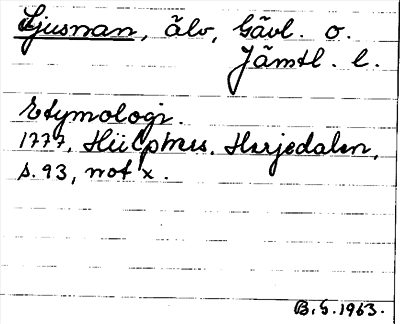 Ljusnan, älv, Gävl. o.
Jämtl. l.
Etymologi.
1777, Hülphers. Herjedalen,
s. 93, not x.
B. G. 1963.